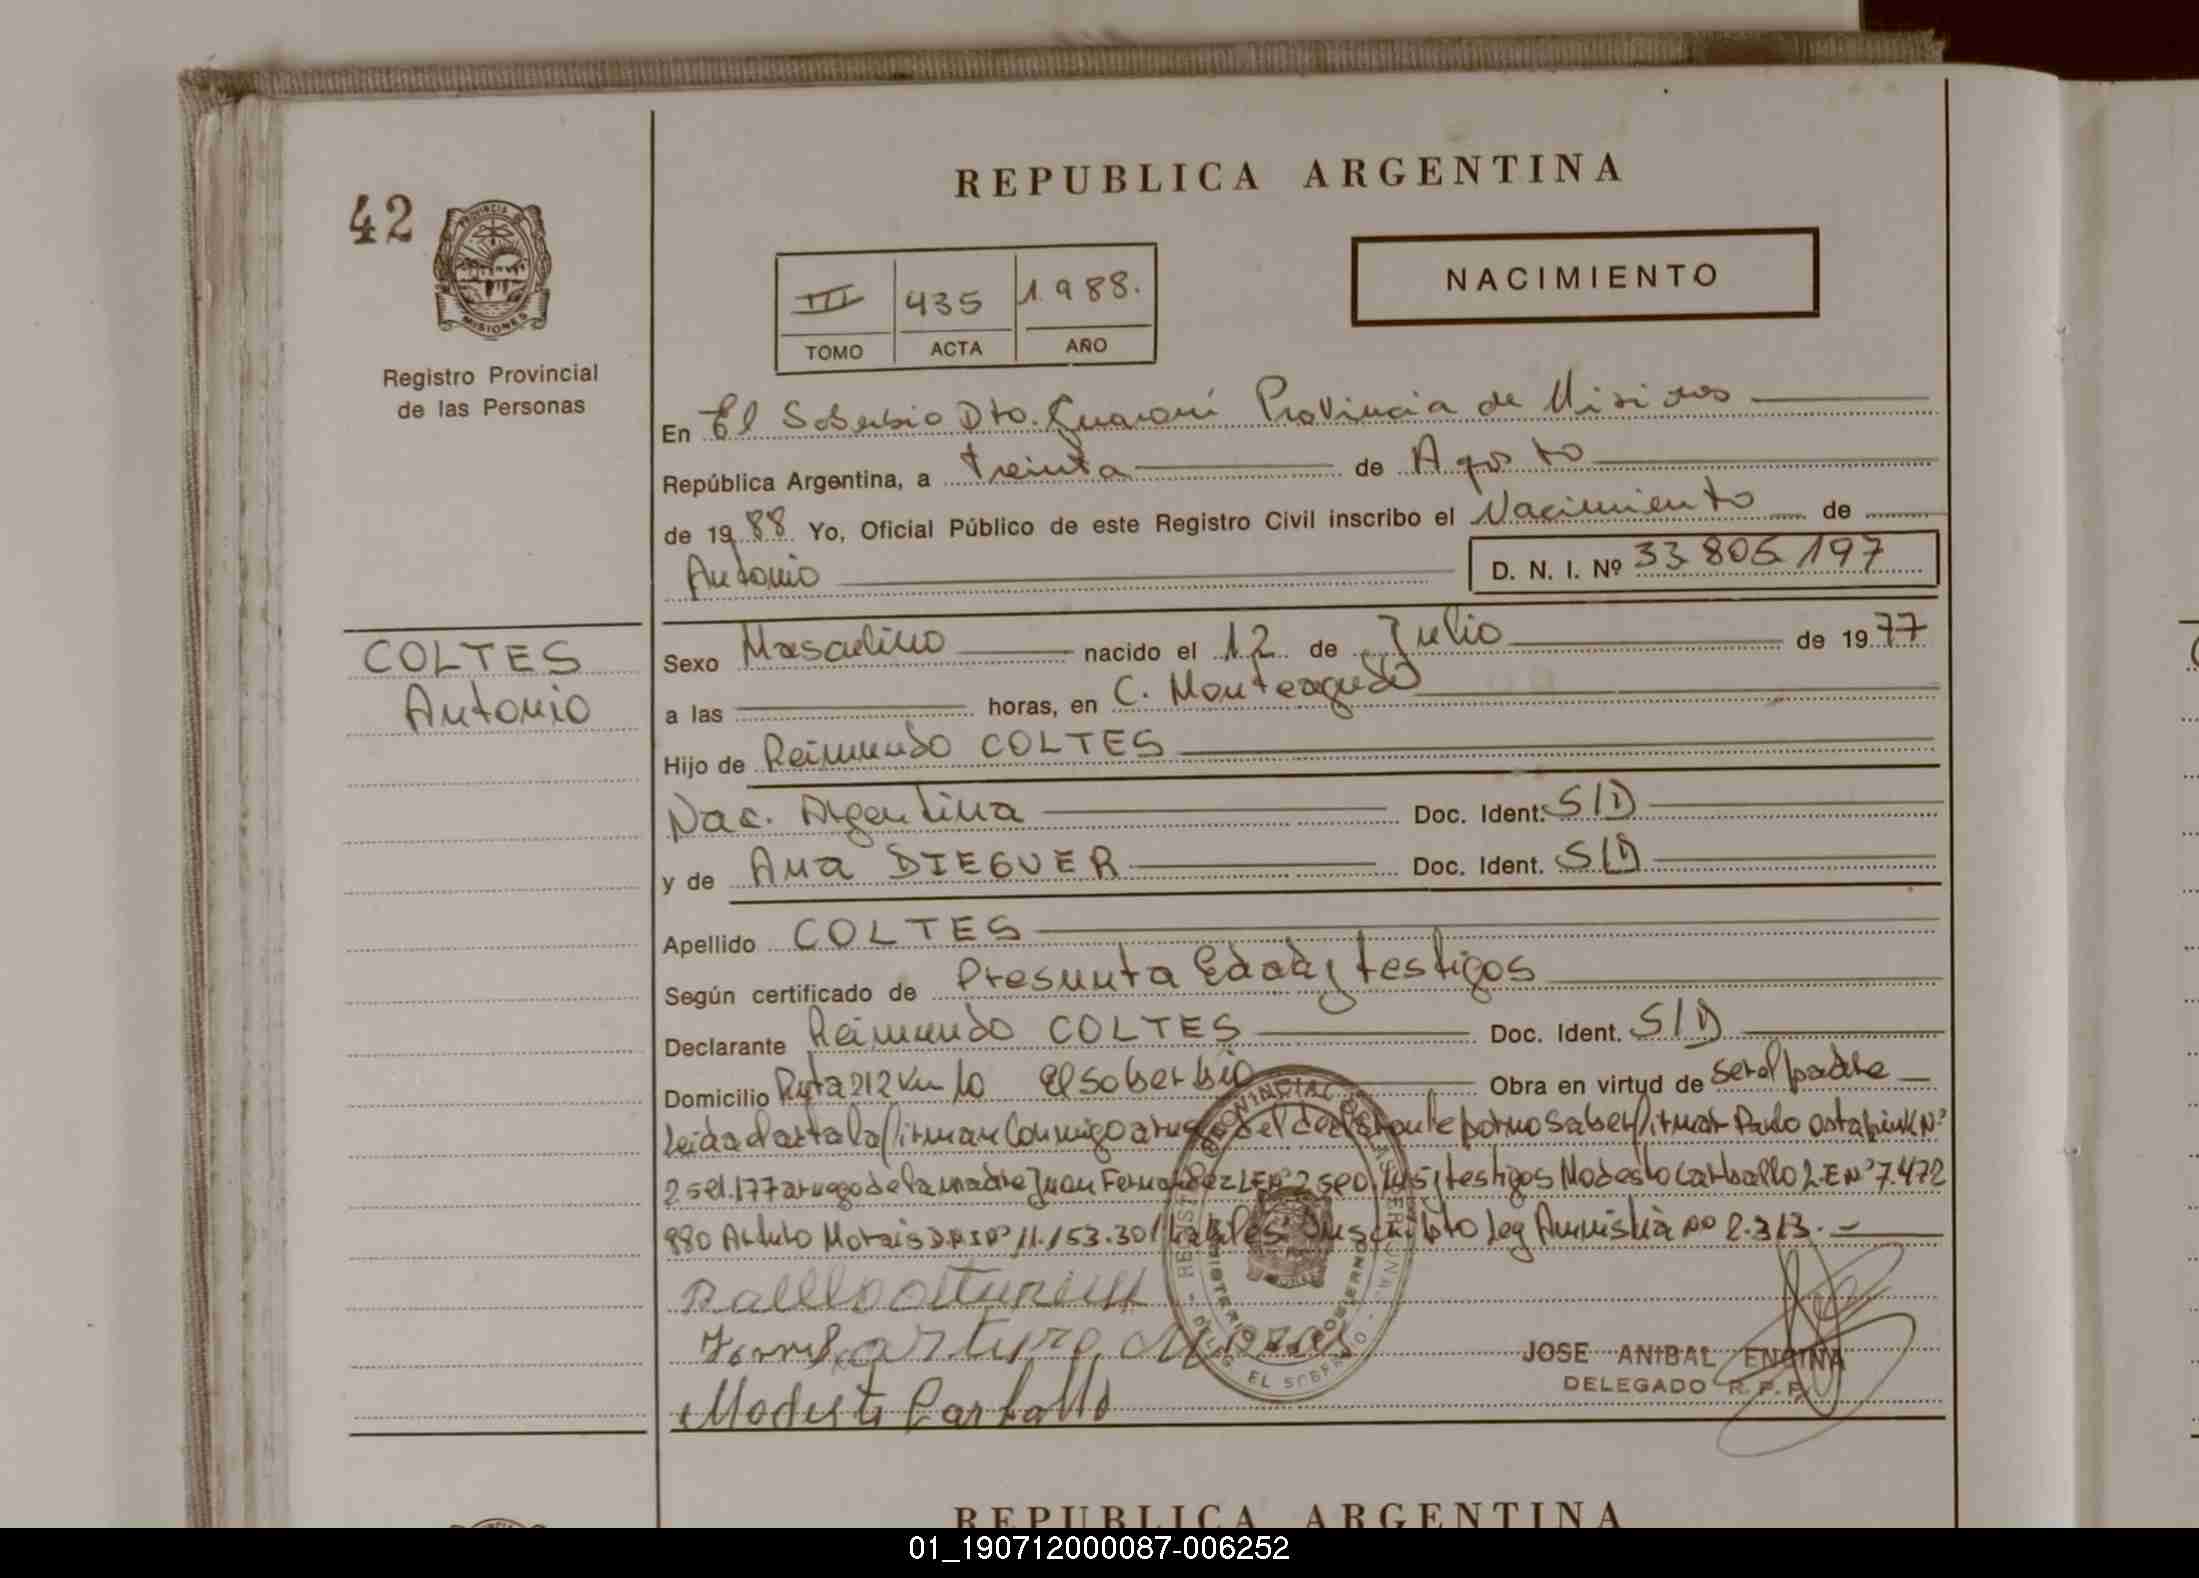 REPUBLICA ARGENTINA
42
PROVINCIA DE
MISIONES
NACIMIENTO
III 435 1.988.
TOMO ACTA AÑO
Registro Provincial
de las Personas
En El Soberbio Dto. Guaraní Provincia de Misiones
República Argentina, a treinta de Agosto
de 19 88 Yo, Oficial Público de este Registro Civil inscribo el Nacimiento de
Antonio D. N. I. Nº 33.805.197
COLTES
Antonio
Sexo Masculino nacido el 12 de Julio de 19 77
a las horas, en C. Monteagudo
Hijo de Reimundo COLTES
Nac. Argentina Doc. Ident. S/D
y de Ana DIEGUER Doc. Ident. S/D
Apellido COLTES
Según certificado de Presunta Edad y testigos
Declarante Reimundo COLTES Doc. Ident. S/D
Domicilio Ruta 212 Km 10 El Soberbio Obra en virtud de ser el padre
Leida el acta la firman conmigo a ruego del declarante por no saber firmar Paulo N°
177 a ruego de la madre Juan Fernandez y testigos Modesto Carballo L.E N° 7.472
880 Arturo Morais D.N.I N° 11.153.301 habiles. Inscripto Ley Amnistia N° 2.313.
arturo Morais
Modesto Carballo
JOSE ANIBAL ENCINA
DELEGADO R. P. P.
EL SOBERBIO
REPUBLICA ARGENTINA
01_190712000087-006252